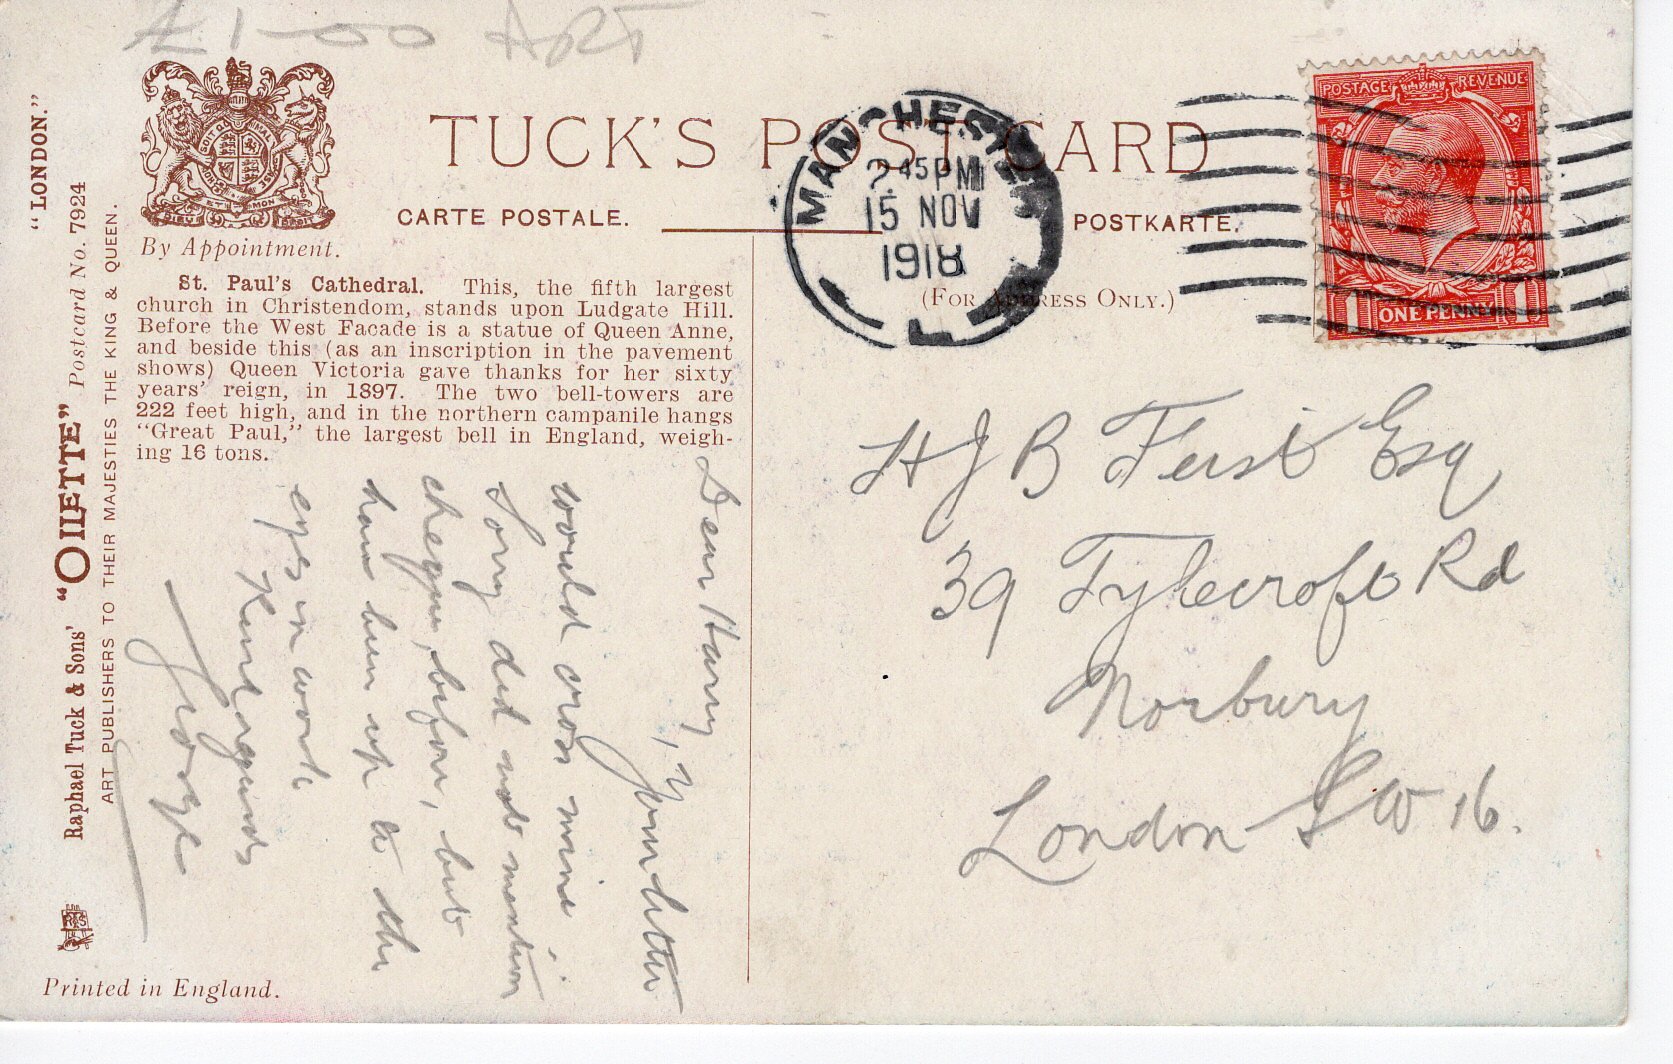 £1-00 ART
"LONDON."
Raphael Tuck & Sons' "OILETTE" Postcard No. 7924
ART PUBLISHERS TO THEIR MAJESTIES THE KING & QUEEN.
By Appointment.
TUCK'S POST CARD
CARTE POSTALE.
POSTKARTE.
(FOR ADDRESS ONLY.)
MANCHESTER
2.45 PM
15 NOV
1918
POSTAGE REVENUE
1 ONE PENNY 1
St. Paul's Cathedral. This, the fifth largest
church in Christendom, stands upon Ludgate Hill.
Before the West Facade is a statue of Queen Anne,
and beside this (as an inscription in the pavement
shows) Queen Victoria gave thanks for her sixty
years' reign, in 1897. The two bell-towers are
222 feet high, and in the northern campanile hangs
"Great Paul," the largest bell in England, weigh-
ing 16 tons.
Dear Harry, Your letter
would cross mine.
Sorry did not mention
cheque, before, but
have been up to the
eyes in work
Kind regards
George
H J B Ferst Esq
39 Tylecroft Rd
Norbury
London SW 16.
RTS
Printed in England.